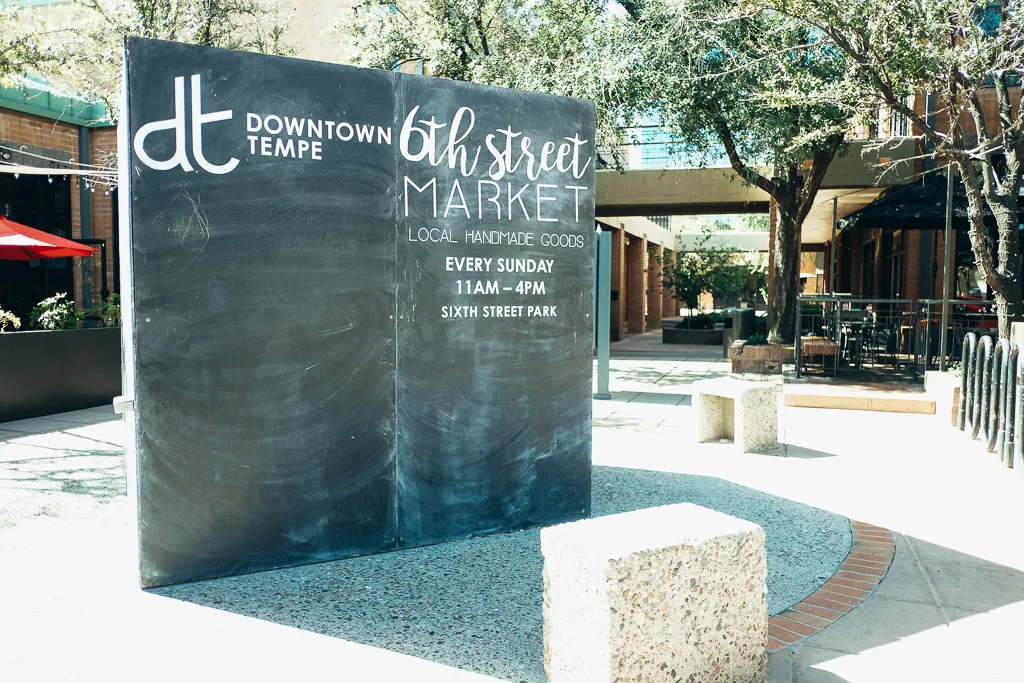 dt
DOWNTOWN
TEMPE
6th street
MARKET
LOCAL HANDMADE GOODS
EVERY SUNDAY
11AM – 4PM
SIXTH STREET PARK